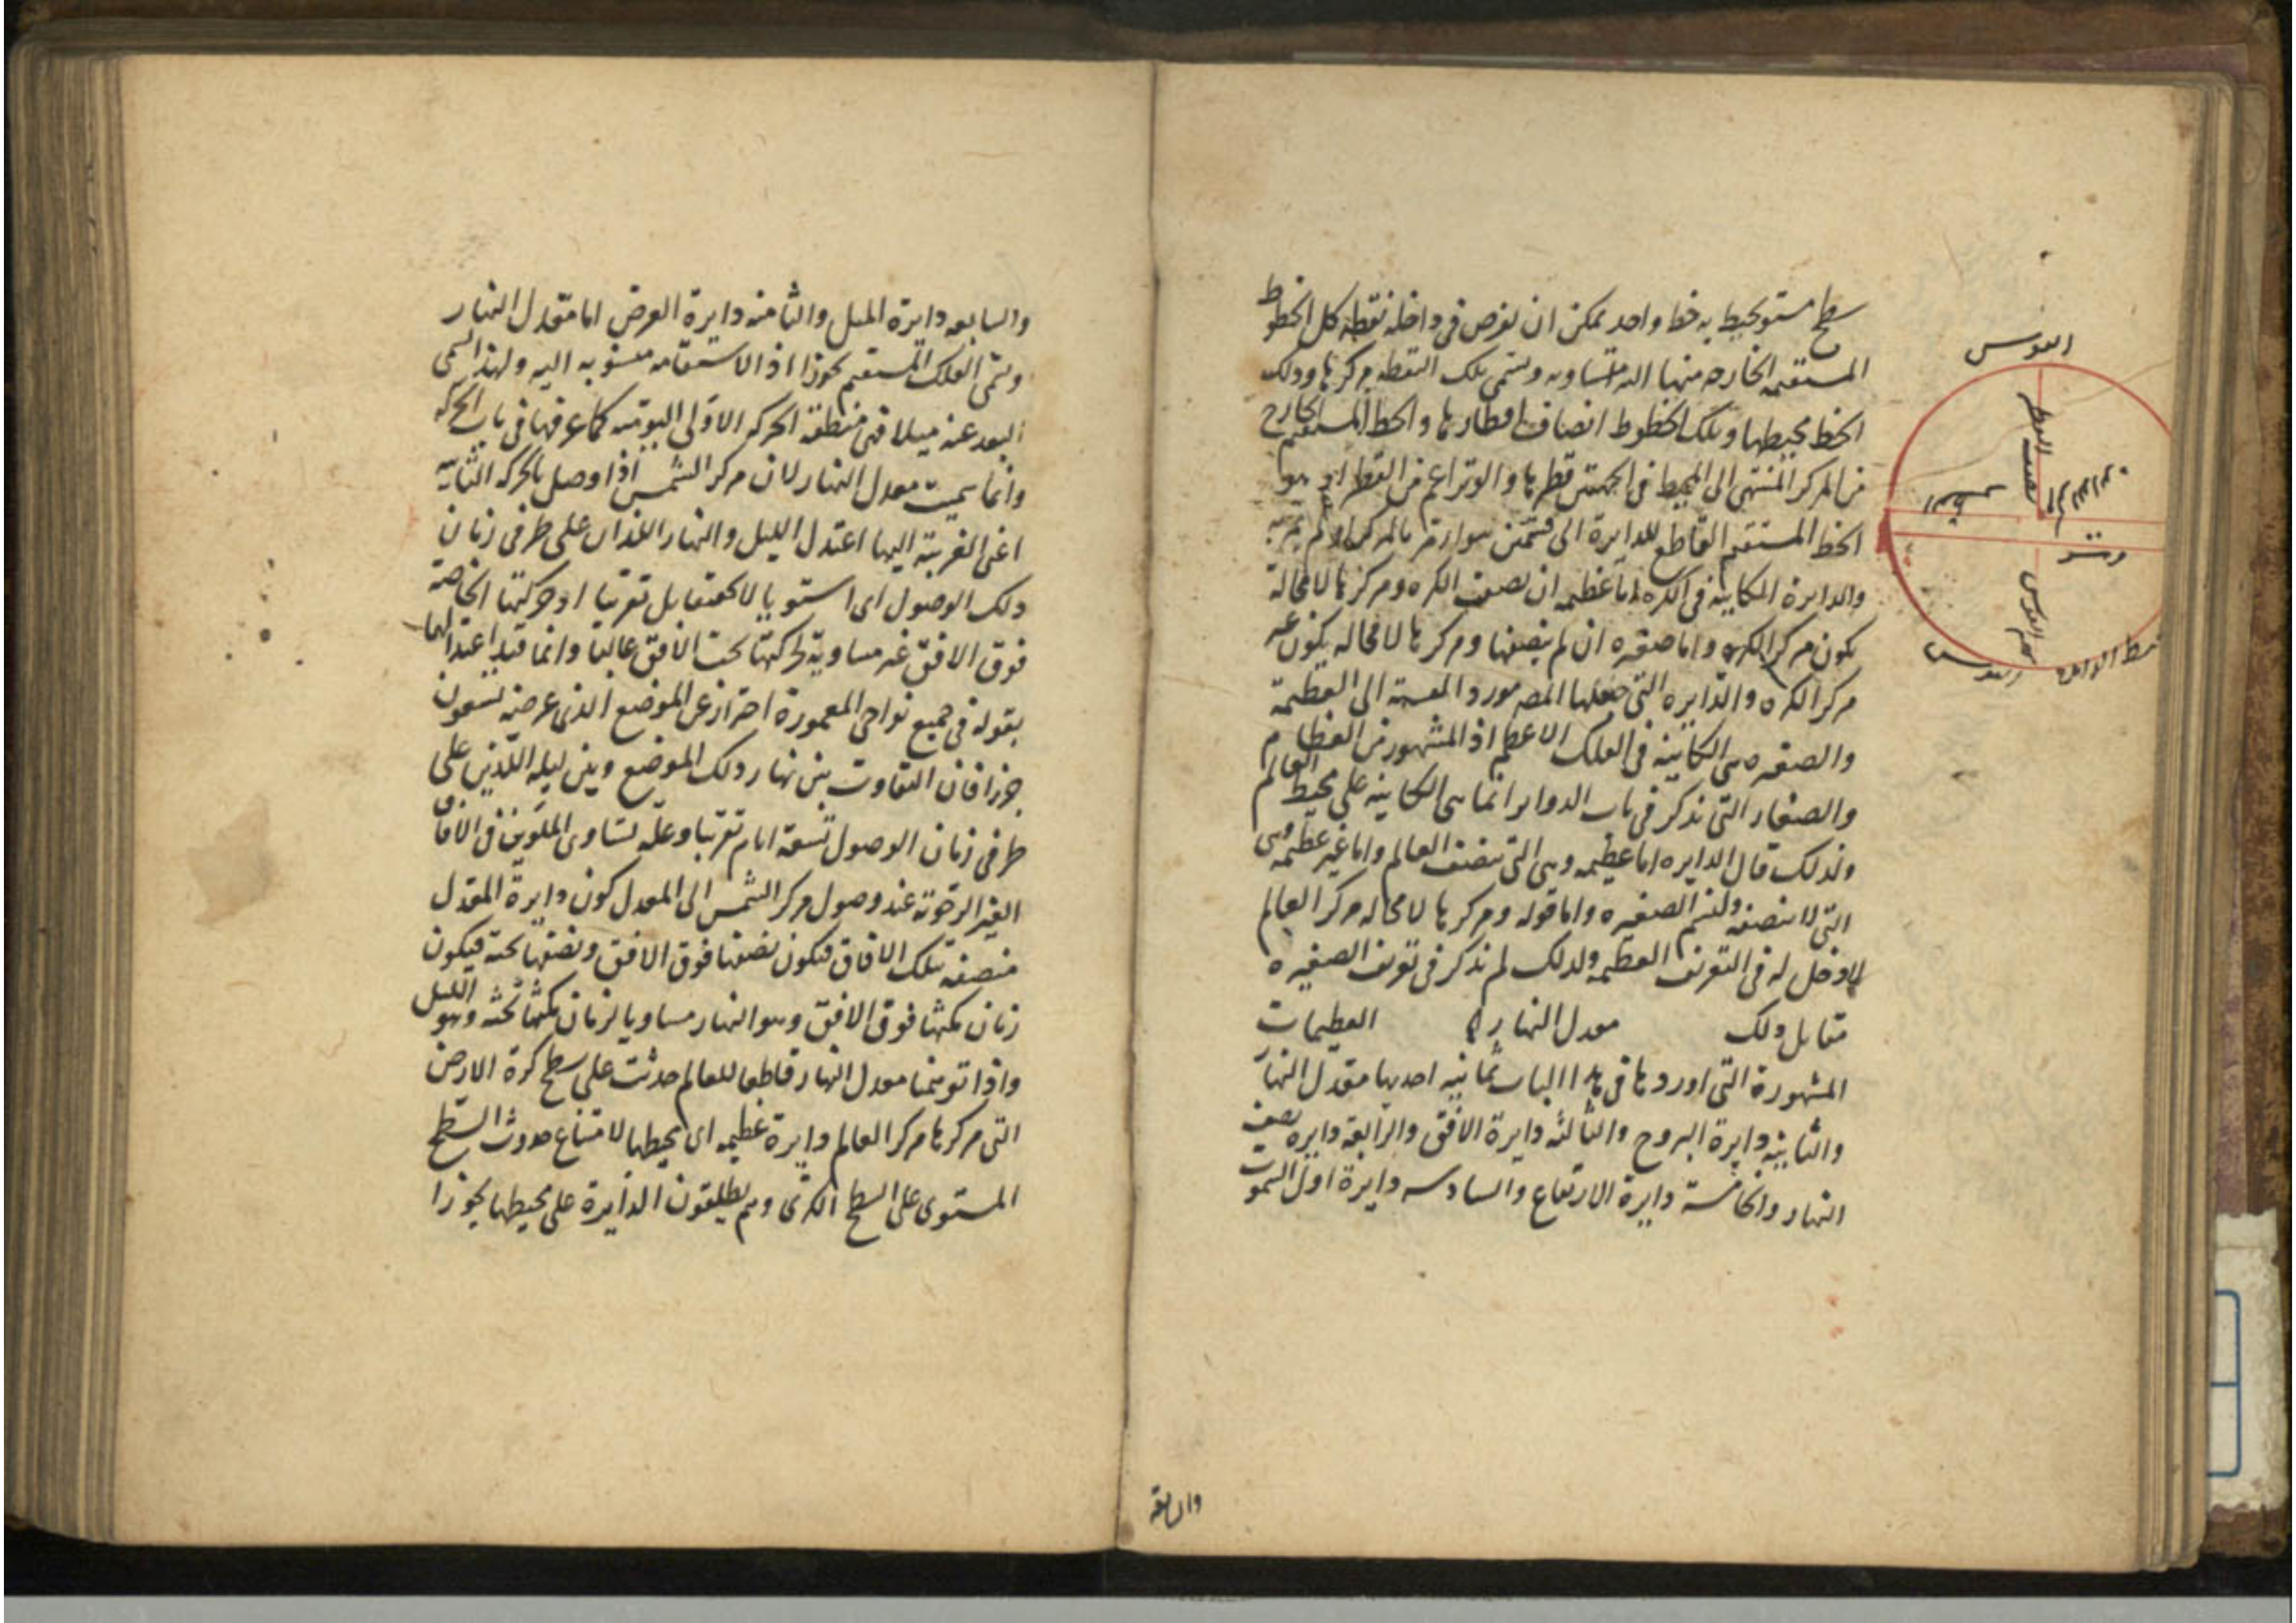 سطح مستو يحيط به خط واحد يمكن ان يفرض فى داخله نقطة كل الخطوط
المستقيمه الخارجه منها اليه متساويه ويسمى تلك النقطه مركزها وذلك
الخط محيطها وتلك الخطوط انصاف اقطارها والخط المستقيم الخارج
من المركز المنتهى الى المحيط فى الجهتين قطرها والوتر اعم من القطر اذ هو
الخط المستقيم القاطع للدايرة الى قسمين سوا مر بالمركز او لم يمر به
والدايرة الكاينه فى الكره اما عظيمه ان نصفت الكره ومركزها لا محالة
يكون مركز الكره واما صغيره ان لم ينصفها ومركزها لا محاله يكون غير
مركز الكره والدايره التى جعلها المصه مورد القسمة الى العظيمة
والصغيره هى الكاينه فى الفلك الاعظم اذ المشهور من العظام
والصغار التى نذكر فى باب الدواير انما هى الكاينه على محيط العالم
ولذلك قال الدايره اما عظيمه وهى التى تنصف العالم واما غير عظيمه وهى
التى لا تنصفه ولتسم الصغيره واما قوله ومركزها لا محاله مركز العالم
لا دخل له فى التعريف العظيمه ولذلك لم نذكر فى تعريف الصغيره
مقابل ذلك معدل النهار العظيمات
المشهورة التى اوردها فى هذا الباب ثمانيه احديها معدل النهار
والثانيه دايرة البروج والثالثه دايرة الافق والرابعه دايره نصف
النهار والخامسة دايرة الارتفاع والسادسه دايرة اول السموت
القوس
نصف القطر
مركز الدايره
قطر
وتر
سهم القوس
القوس
محيط الدايره
والسابعه
والسابعه دايرة الميل والثامنه دايرة العرض اما معدل النهار
ويسمى الفلك المستقيم تجوزا اذ الاستقامه منسوبه اليه ولهذا سمى
البعد عنه ميلا فهى منطقة الحركه الاولى اليوميه كما عرفها فى باب الحركه
وانما سميت معدل النهار لان مركز الشمس اذا وصل بالحركه الثانيه
اعنى الغربية اليها اعتدل الليل والنهار اللذان على طرفى زمان
ذلك الوصول اى استويا لا حقيقة بل تقريبا اذ حركتها الخاصة
فوق الافق غير مساوية لحركتها تحت الافق غالبا وانما قيد اعتدالهما
بقوله فى جميع نواحى المعمورة احترازا عن الموضع الذى عرضه تسعون
جزءا فان التفاوت بين نهار ذلك الموضع وبين ليله اللذين على
طرفى زمان الوصول تسعة ايام تقريبا وعلة تساوى الملوين فى الافاق
الغير الرحوية عند وصول مركز الشمس الى المعدل كون دايرة المعدل
منصفه بتلك الافاق فيكون نصفها فوق الافق ونصفها تحته فيكون
زمان مكثها فوق الافق وهو النهار مساويا لزمان مكثها تحته وهو الليل
واذا توهمنا معدل النهار قاطعا للعالم حدثت على سطح كرة الارض
التى مركزها مركز العالم دايرة عظيمه اى محيطها لامتناع حدوث السطح
المستوى على السطح الكرى وهم يطلقون الدايرة على محيطها تجوزا